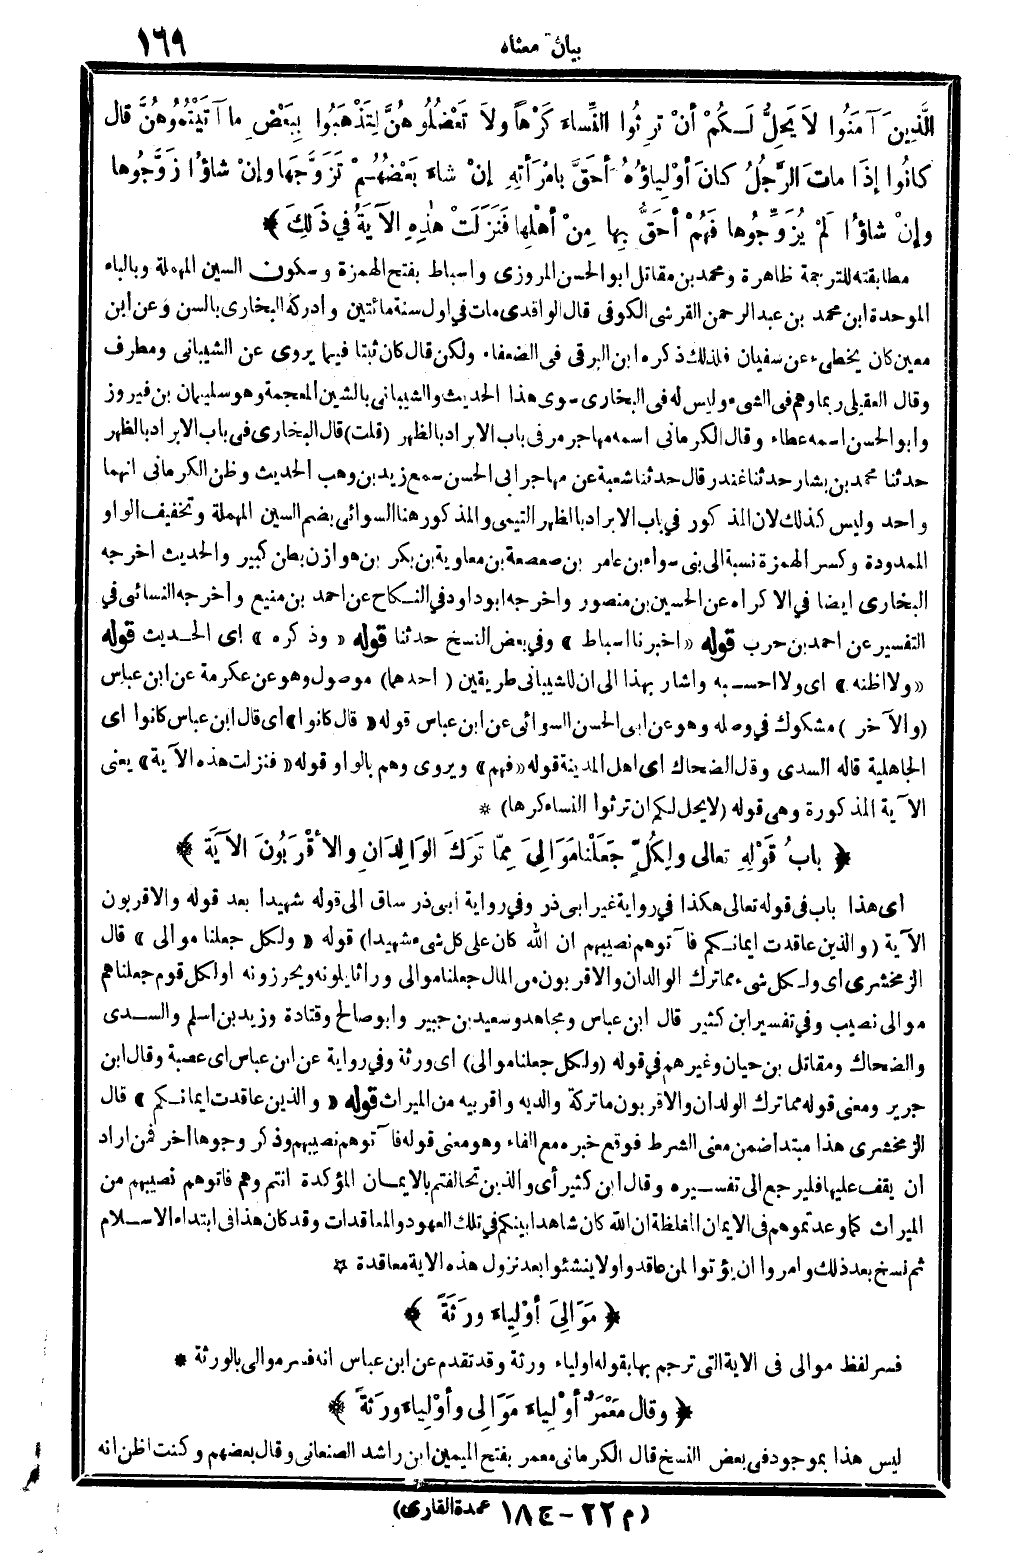 بيان معناه ١٦٩
الَّذِينَ آمَنُوا لاَ يَحِلُّ لَكُمْ أَنْ تَرِثُوا النِّسَاءَ كَرْهاً ولاَ تَعْضُلُوهُنَّ لِتَذْهَبُوا بِبَعْضِ ما آتَيْتُمُوهُنَّ قال
كانُوا إذَا ماتَ الرَّجُلُ كانَ أوْلِياؤُهُ أحَقَّ بامْرَأتِهِ إنْ شاءَ بَعْضُهُمْ تَزَوَّجَهَا وإنْ شاؤُا زَوَّجُوها
وإنْ شاؤُا لَمْ يُزَوِّجُوها فَهُمْ أحَقُّ بِها مِنْ أهْلِها فَنَزَلَتْ هٰذِهِ الآيَةُ في ذَلِكَ ﴾
مطابقته للترجمة ظاهرة ومحمد بن مقاتل ابو الحسن المروزى واسباط بفتح الهمزة وسكون السين المهملة وبالباء
الموحدة ابن محمد بن عبد الرحمن القرشى الكوفى قال الواقدى مات في اول سنة مائتين وأدركه البخارى بالسن وعن ابن
معين كان يخطىء عن سفيان فلذلك ذكره ابن البرقى فى الضعفاء ولكن قال كان ثبتا فيما يروى عن الشيبانى ومطرف
وقال العقيلى ربما وهم فى الشىء وليس له فى البخارى سوى هذا الحديث والشيبانى بالشين المعجمة وهو سليمان بن فيروز
وابو الحسن اسمه عطاء وقال الكرمانى اسمه مهاجر مر فى باب الابراد بالظهر (قلت) قال البخارى فى باب الابراد بالظهر
حدثنا محمد بن بشار حدثنا غندر قال حدثنا شعبة عن مهاجر ابى الحسن سمع زيد بن وهب الحديث وظن الكرمانى انهما
واحد وليس كذلك لان المذكور في باب الابراد بالظهر التيمى والمذكور هنا السوائى بضم السين المهملة وتخفيف الواو
الممدودة وكسر الهمزة نسبة الى بنى سواءبن عامر بن صعصعة بن معاوية بن بكر بن هوازن بطن كبير والحديث اخرجه
البخارى ايضا في الاكراه عن الحسين بن منصور واخرجه ابو داود في النكاح عن احمد بن منيع وأخرجه النسائى في
التفسير عن احمد بن حرب قوله « اخبرنا اسباط » وفي بعض النسخ حدثنا قوله « وذكره » اى الحديث قوله
«ولا اظنه» اى ولا احسبه واشار بهذا الى ان للشيبانى طريقين (احدهما) موصول وهو عن عكرمة عن ابن عباس
(والآخر) مشكوك في وصله وهو عن ابى الحسن السوائى عن ابن عباس قوله «قال كانوا» اى قال ابن عباس كانوا اى
الجاهلية قاله السدى وقال الضحاك اى اهل المدينة قوله «فهم» ويروى وهم بالواو قوله «فنزلت هذه الآية» يعنى
الآية المذكورة وهى قوله (لا يحل لكم ان ترثوا النساء كرها) *
﴿ بابُ قَوْلِهِ تعالى ولِكُلٍّ جَعَلْنا مَوَالِىَ مِمَّا تَرَكَ الوَالِدَانِ والأقْرَبُونَ الآيَةَ ﴾
اى هذا باب فى قوله تعالى هكذا في رواية غير ابى ذر وفي رواية ابى ذر ساق الى قوله شهيدا بعد قوله والاقربون
الآية (والذين عاقدت ايمانكم فآتوهم نصيبهم ان الله كان على كل شىء شهيدا) قوله « ولكل جعلنا موالى » قال
الزمخشرى اى ولكل شىء مما ترك الوالدان والاقربون من المال جعلنا موالى وراثا يلونه ويحرزونه او لكل قوم جعلناهم
موالى نصيب وفي تفسير ابن كثير قال ابن عباس ومجاهد وسعيد بن جبير وابو صالح وقتادة وزيد بن اسلم والسدى
والضحاك ومقاتل بن حيان وغيرهم في قوله (ولكل جعلنا موالى) اى ورثة وفي رواية عن ابن عباس اى عصبة وقال ابن
جرير ومعنى قوله مما ترك الولدان والاقربون ما تركة والديه واقربيه من الميراث قوله « والذين عاقدت ايمانكم » قال
الزمخشرى هذا مبتدأ ضمن معنى الشرط فوقع خبره مع الفاء وهو معنى قوله فآتوهم نصيبهم وذكر وجوها أخر فمن اراد
ان يقف عليها فليرجع الى تفسيره وقال ابن كثير أى والذين تحالفتم بالايمان المؤكدة انتم وهم فاتوهم نصيبهم من
الميراث كما وعدتموهم فى الايمان المغلظة ان الله كان شاهدا بينكم في تلك العهود والمعاقدات وقد كان هذا فى ابتداء الاسلام
ثم نسخ بعد ذلك وامروا ان يؤتوا لمن عاقدوا ولا ينشئوا بعد نزول هذه الاية معاقدة *
﴿ مَوَالِىَ أوْلِياءَ ورَثَةً ﴾
فسر لفظ موالى فى الاية التى ترجم بها بقوله اولياء ورثة وقد تقدم عن ابن عباس انه فسر موالى بالورثة *
﴿ وقال مَعْمَرٌ أوْلِياءَ مَوَالِى وأوْلِياءَ ورَثَةً ﴾
ليس هذا بموجود فى بعض النسخ قال الكرمانى معمر بفتح الميمين ابن راشد الصنعانى وقال بعضهم وكنت اظن انه
(م ٢٢ - ج ١٨ عمدة القارى)